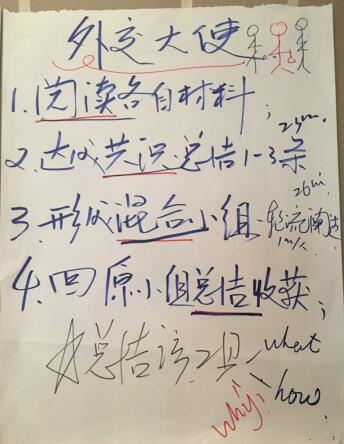 外交大使
1. 阅读各自材料;
2min.
2. 达成共识总结1-3条
20min
3. 形成混合小组. 轮流阐述
1m/人
4. 回原小组总结收获;
#总结该工具
what
how
why?